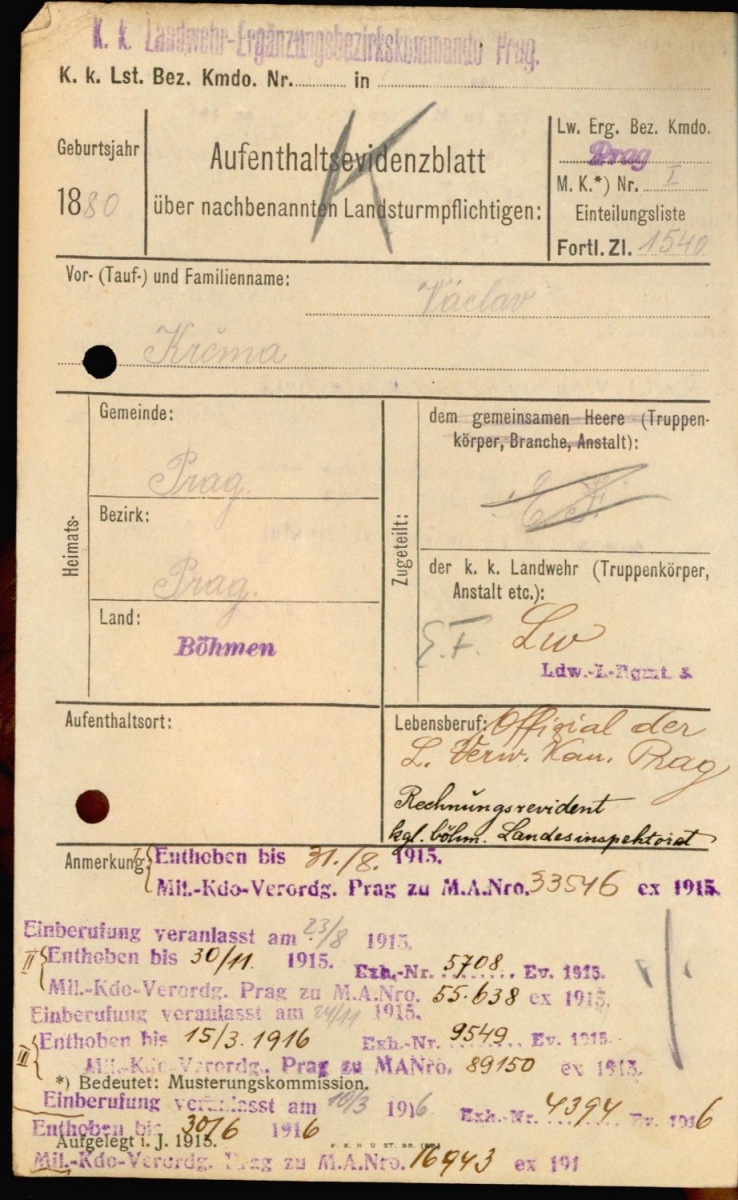 K. k. Landwehr-Ergänzungsbezirkskommando Prag.
K. k. Lst. Bez. Kmdo. Nr. in
Geburtsjahr
1880
Aufenthaltsevidenzblatt
über nachbenannten Landsturmpflichtigen:
Lw. Erg. Bez. Kmdo.
Prag
M. K.*) Nr. I
Einteilungsliste
Fortl. Zl. 1540
Vor- (Tauf-) und Familienname:
Václav
Krčma
Heimats-
Gemeinde:
Prag
Bezirk:
Prag.
Land:
Böhmen
Zugeteilt:
dem gemeinsamen Heere (Truppen-
körper, Branche, Anstalt):
E. F.
der k. k. Landwehr (Truppenkörper,
Anstalt etc.):
E. F. Lw
Ldw.-I.-Rgmt.
Aufenthaltsort:
Lebensberuf: Offizial der
L. Verw. Kan. Prag
Rechnungsrevident
kgl. böhm. Landesinspektorat
Anmerkung: I Enthoben bis 31./8. 1915.
Mil.-Kdo-Verordg. Prag zu M.A.Nro. 33546 ex 1915.
Einberufung veranlasst am 23/8 1915.
II Enthoben bis 30/11. 1915. Exh.-Nr. 5708 Ev. 1915.
Mil.-Kdo-Verordg. Prag zu M.A.Nro. 55.638 ex 1915.
Einberufung veranlasst am 24/11 1915.
III Enthoben bis 15/3. 1916 Exh.-Nr. 9549 Ev. 1915.
Mil.-Kdo-Verordg. Prag zu MANro. 89150 ex 1915.
*) Bedeutet: Musterungskommission.
Einberufung veranlasst am 10/3 1916 Exh.-Nr. 4394 Ev. 1916
Enthoben bis 30/6 1916
Aufgelegt i. J. 1915.
Mil.-Kdo-Verordg. Prag zu M.A.Nro. 16943 ex 191